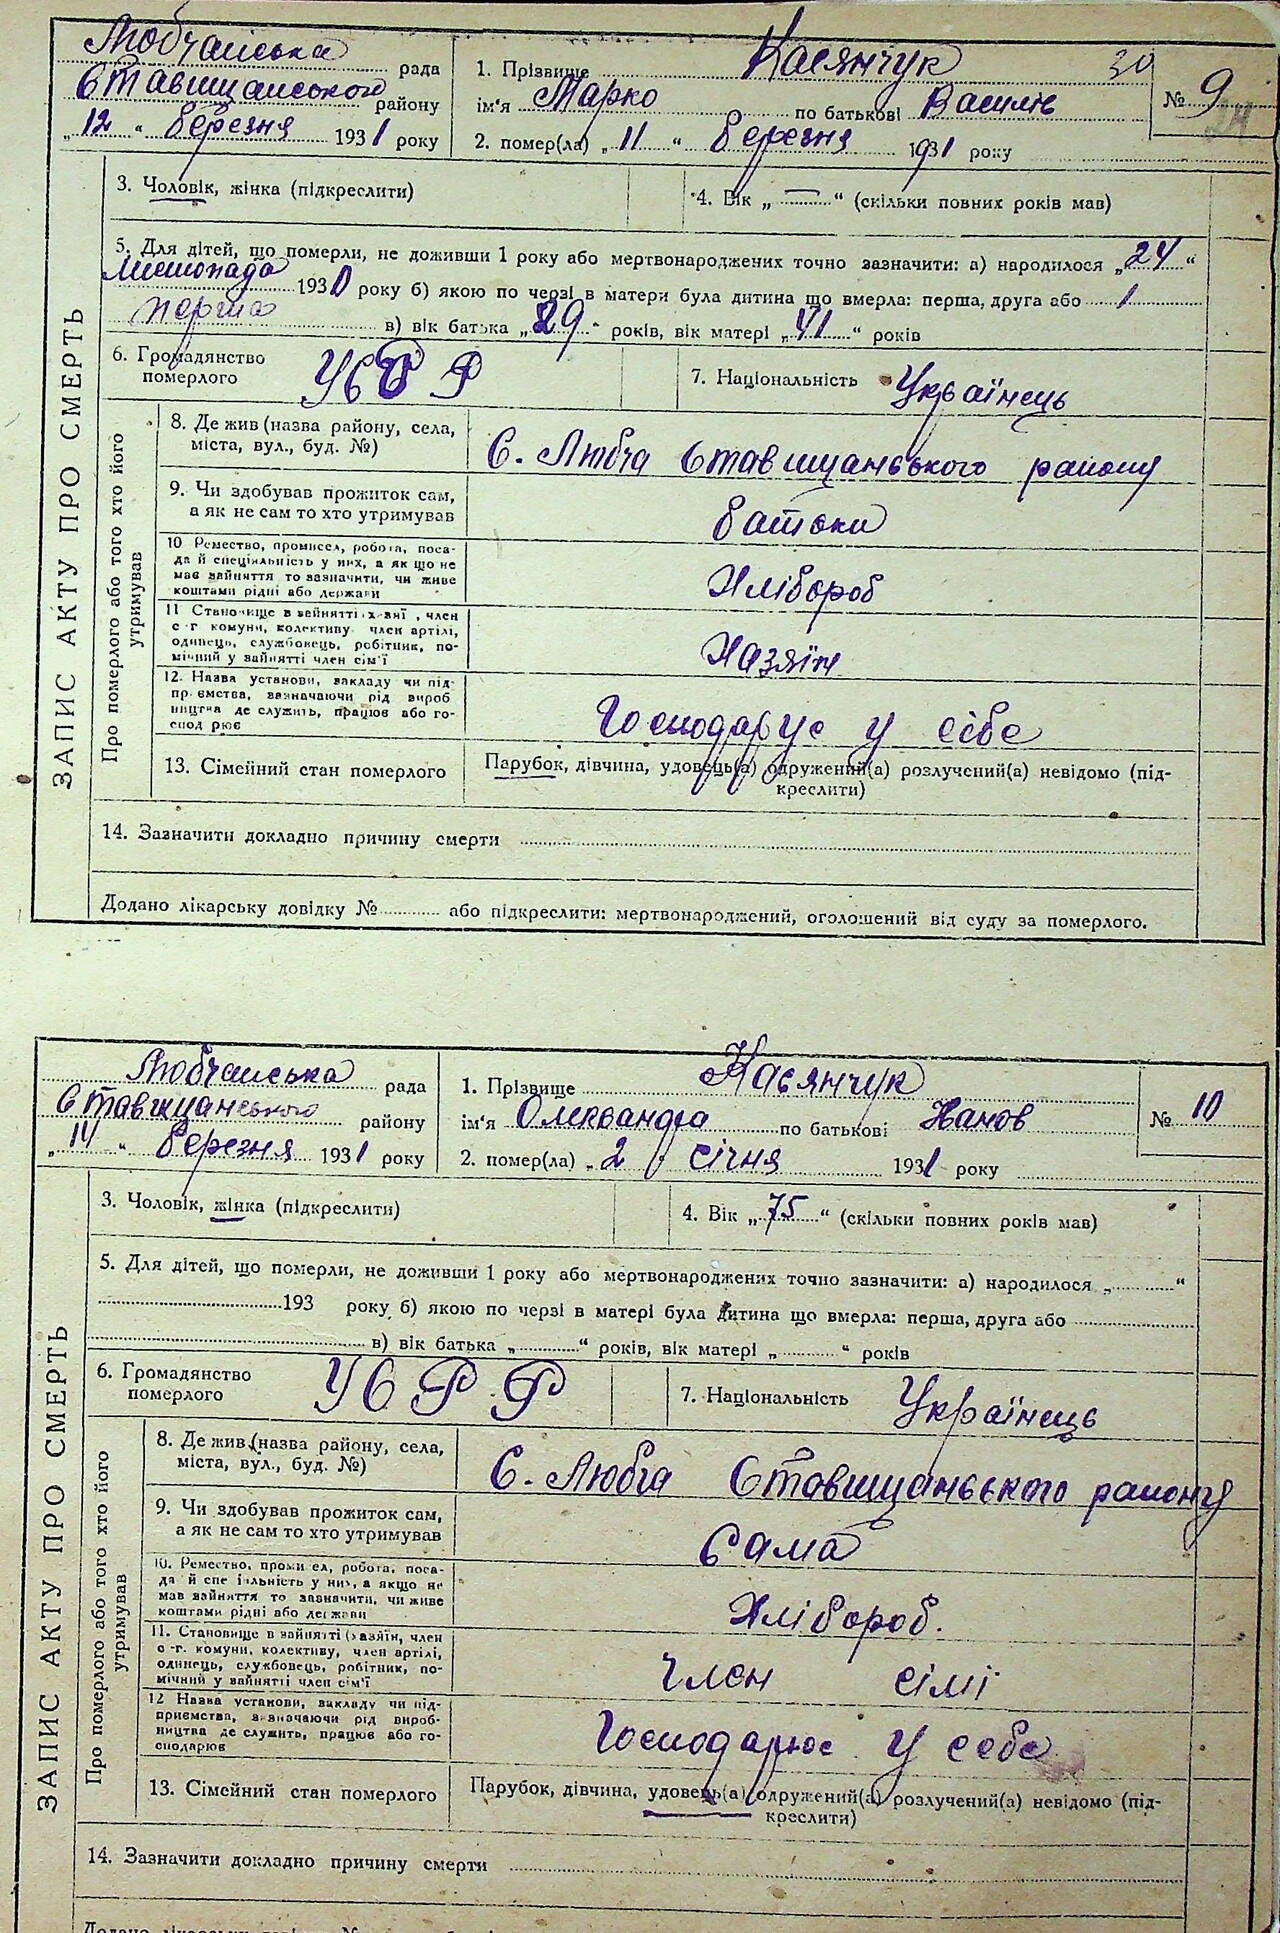 Любчанська рада
Ставищанського району
„12“ березня 1931 року
1. Прізвище Касянчук 30
ім'я Марко по батькові Василів
2. помер(ла) „11“ березня 1931 року
№ 9
24
ЗАПИС АКТУ ПРО СМЕРТЬ
3. Чоловік, жінка (підкреслити)
4. Вік „—“ (скільки повних років мав)
5. Для дітей, що померли, не доживши 1 року або мертвонароджених точно зазначити: а) народилося „24“
Листопада 1930 року б) якою по черзі в матери була дитина що вмерла: перша, друга або 1
перша в) вік батька „29“ років, вік матері „41“ років
6. Громадянство
померлого
УСРР
7. Національність Українець
Про померлого або того хто його
утримував
8. Де жив (назва району, села,
міста, вул., буд. №)
С. Любча Ставищанського району
9. Чи здобував прожиток сам,
а як не сам то хто утримував
батьки
10 Ремество, промисел, робота, поса-
да й спеціяльність у них, а як що не
має зайняття то зазначити, чи живе
коштами рідні або держави
Хлібороб
11 Становище в зайнятті (х-зяї, член
с-г комуни, колективу член артілі,
одинець, службовець, робітник, по-
мічний у зайнятті член сім'ї
Хазяїн
12. Назва установи, закладу чи під-
пр ємства, зазначаючи рід вироб
ництва де служить, працює або го-
спод рює
Господарує у себе
13. Сімейний стан померлого
Парубок, дівчина, удовець(а) одружений(а) розлучений(а) невідомо (під-
креслити)
14. Зазначити докладно причину смерти
Додано лікарську довідку № або підкреслити: мертвонароджений, оголошений від суду за померлого.
Любчанська рада
Ставищанського району
„14“ березня 1931 року
1. Прізвище Касянчук
ім'я Олександра по батькові
2. помер(ла) „2“ січня 1931 року
№ 10
ЗАПИС АКТУ ПРО СМЕРТЬ
3. Чоловік, жінка (підкреслити)
4. Вік „75“ (скільки повних років мав)
5. Для дітей, що померли, не доживши 1 року або мертвонароджених точно зазначити: а) народилося „“
193 року б) якою по черзі в матері була дитина що вмерла: перша, друга або
в) вік батька „“ років, вік матері „“ років
6. Громадянство
померлого
УСРР
7. Національність Українець
Про померлого або того хто його
утримував
8. Де жив (назва району, села,
міста, вул., буд. №)
С. Любча Ставищанського району
9. Чи здобував прожиток сам,
а як не сам то хто утримував
Сама
10. Ремество, промисел, робота, поса-
да й спе іяльність у них, а якщо не
мав зайняття то зазначити, чи живе
коштами рідні або держави
Хлібороб.
11. Становище в зайнятті (хазяїн, член
с-г. комуни, колективу, член артілі,
одинець, службовець, робітник, по-
мічний у зайнятті член сім'ї
член сімї
12 Назва установи, закладу чи під-
приємства, зазначаючи рід вироб-
ництва де служить, працює або го-
сподарює
Господарює у себе
13. Сімейний стан померлого
Парубок, дівчина, удовець(а) одружений(а) розлучений(а) невідомо (під-
креслити)
14. Зазначити докладно причину смерти